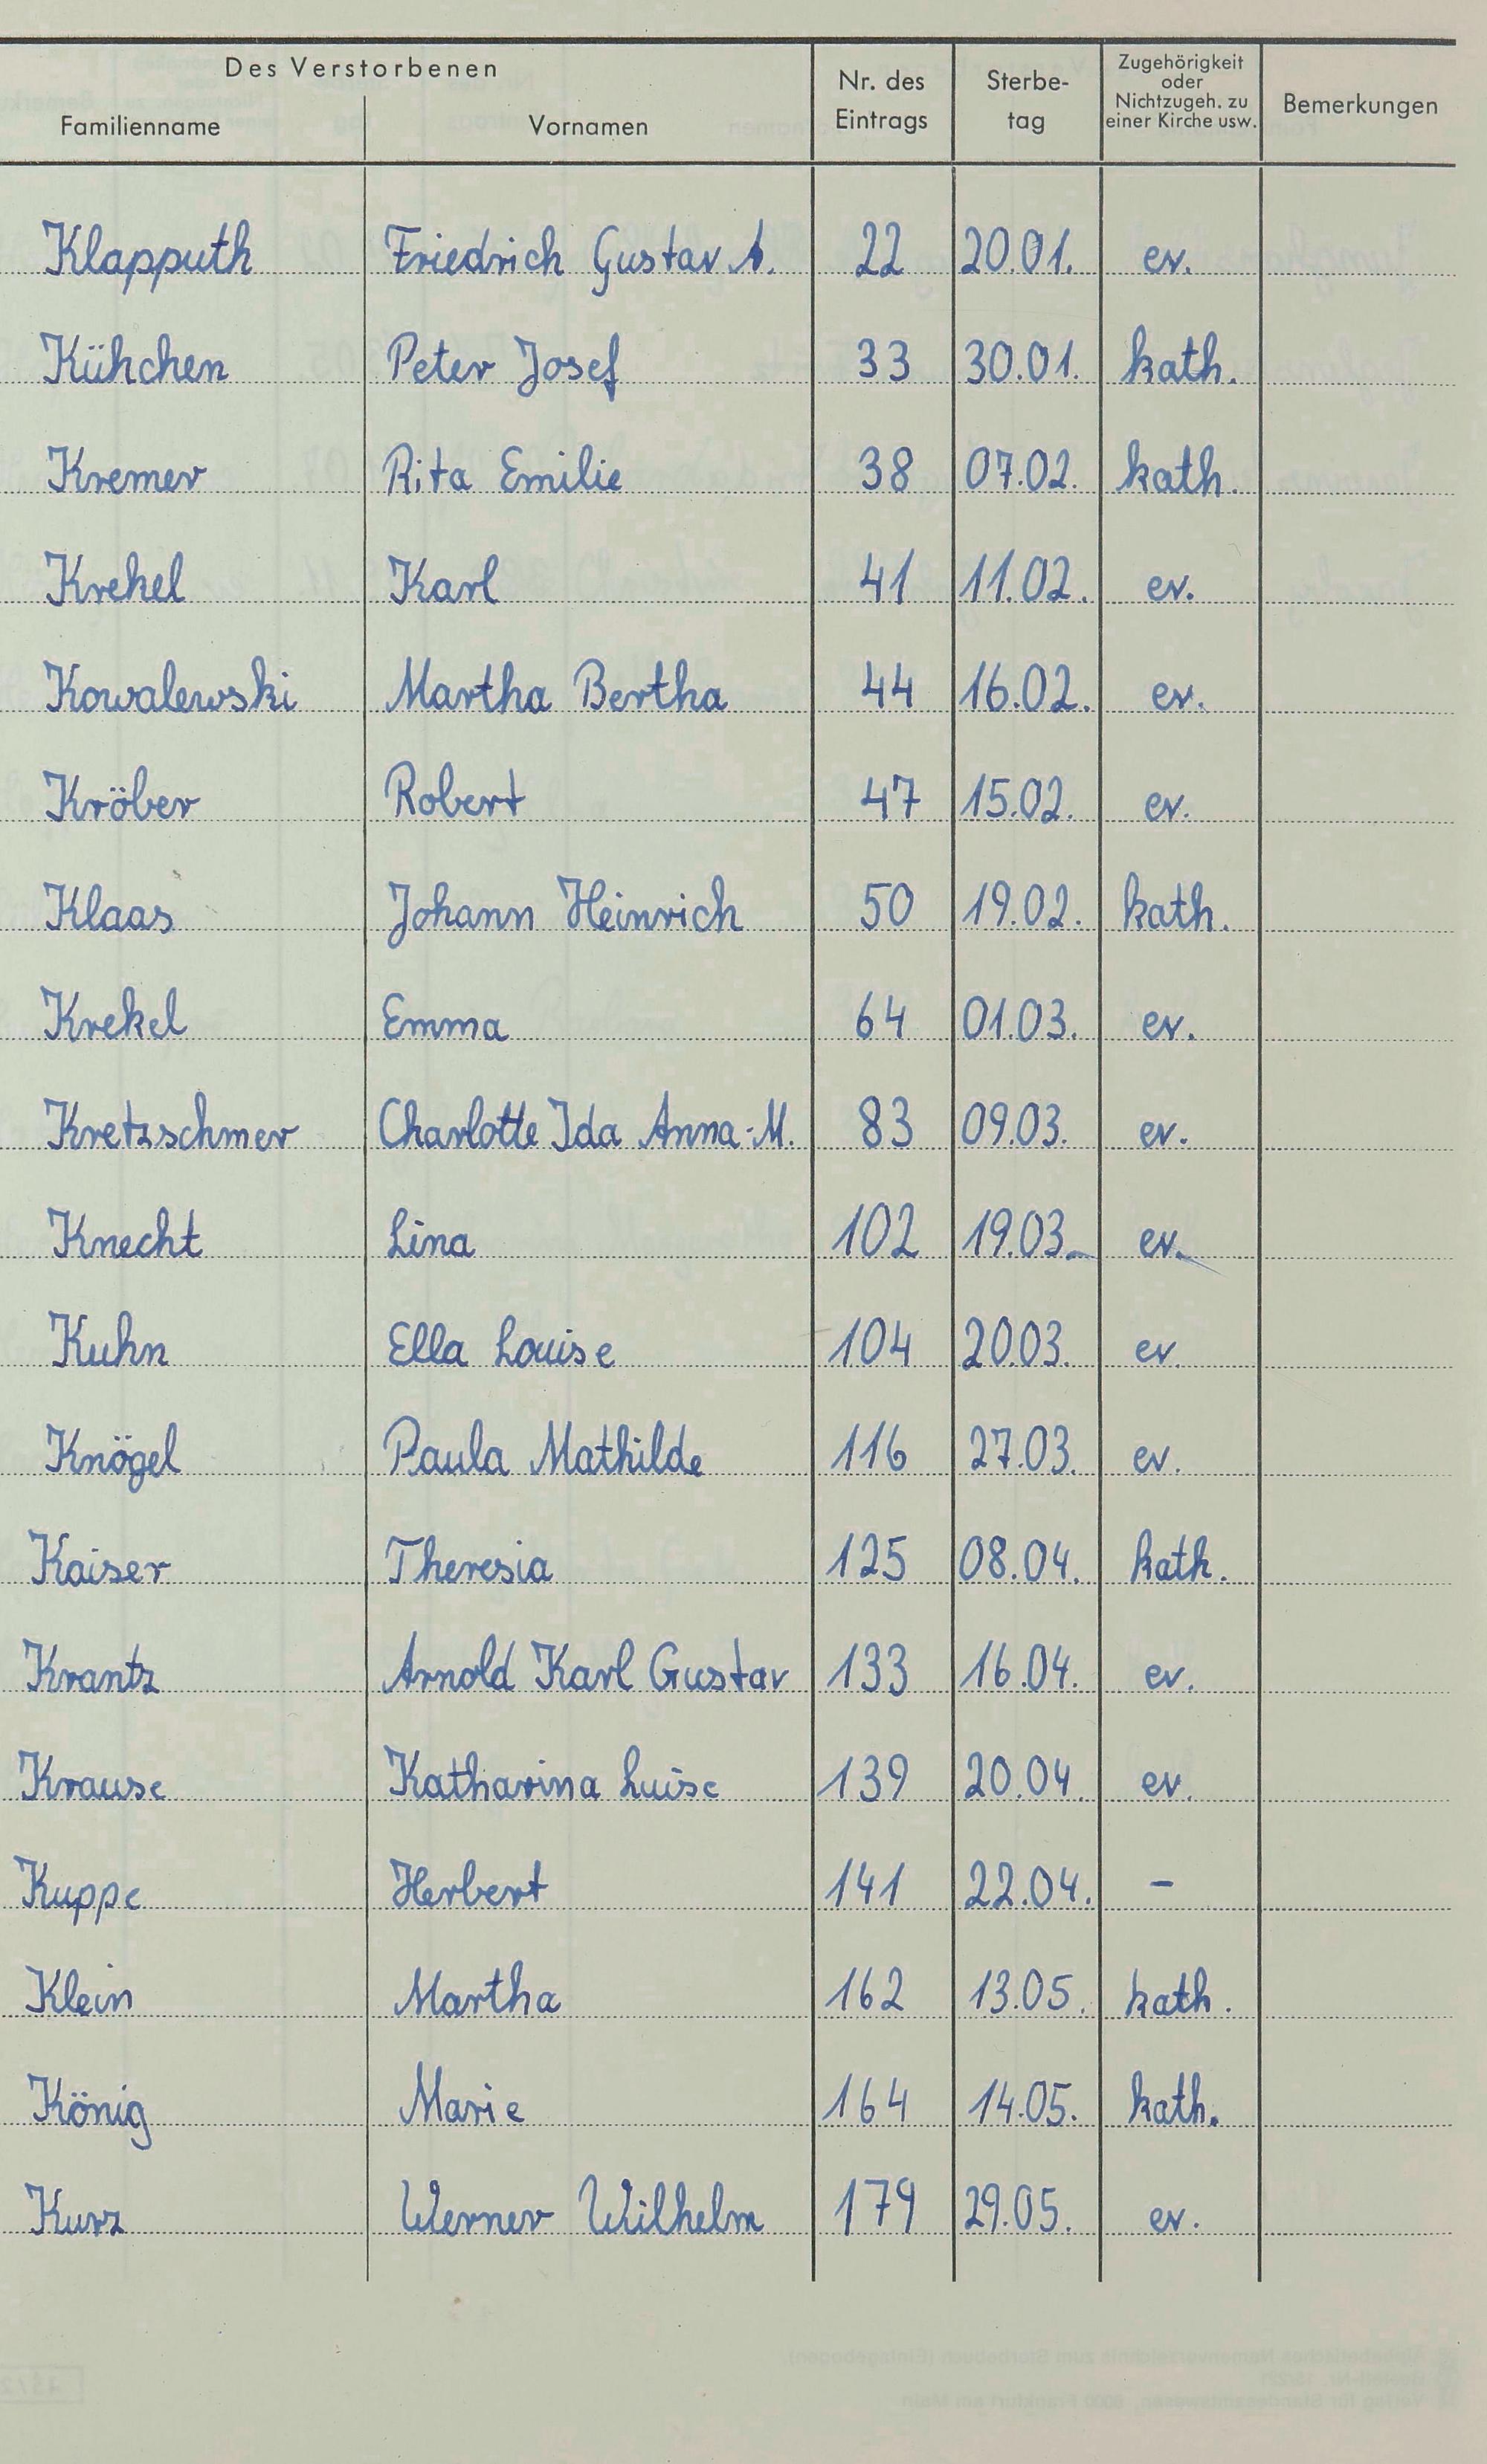 Des Verstorbenen
Familienname Vornamen Nr. des Eintrags Sterbe- tag Zugehörigkeit oder Nichtzugeh. zu einer Kirche usw. Bemerkungen
Klapputh Friedrich Gustav A. 22 20.01. ev.
Kühchen Peter Josef 33 30.01. kath.
Kremer Rita Emilie 38 07.02. kath.
Krekel Karl 41 11.02. ev.
Kowalewski Martha Bertha 44 16.02. ev.
Kröber Robert 47 15.02. ev.
Klaas Johann Heinrich 50 19.02. kath.
Krekel Emma 64 01.03. ev.
Kretzschmer Charlotte Ida Anna-M. 83 09.03. ev.
Knecht Lina 102 19.03. ev.
Kuhn Ella Louise 104 20.03. ev.
Knögel Paula Mathilde 116 27.03. ev.
Kaiser Theresia 125 08.04. kath.
Krantz Arnold Karl Gustav 133 16.04. ev.
Krause Katharina Luise 139 20.04. ev.
Kuppe Herbert 141 22.04. –
Klein Martha 162 13.05. kath.
König Marie 164 14.05. kath.
Kurz Werner Wilhelm 179 29.05. ev.